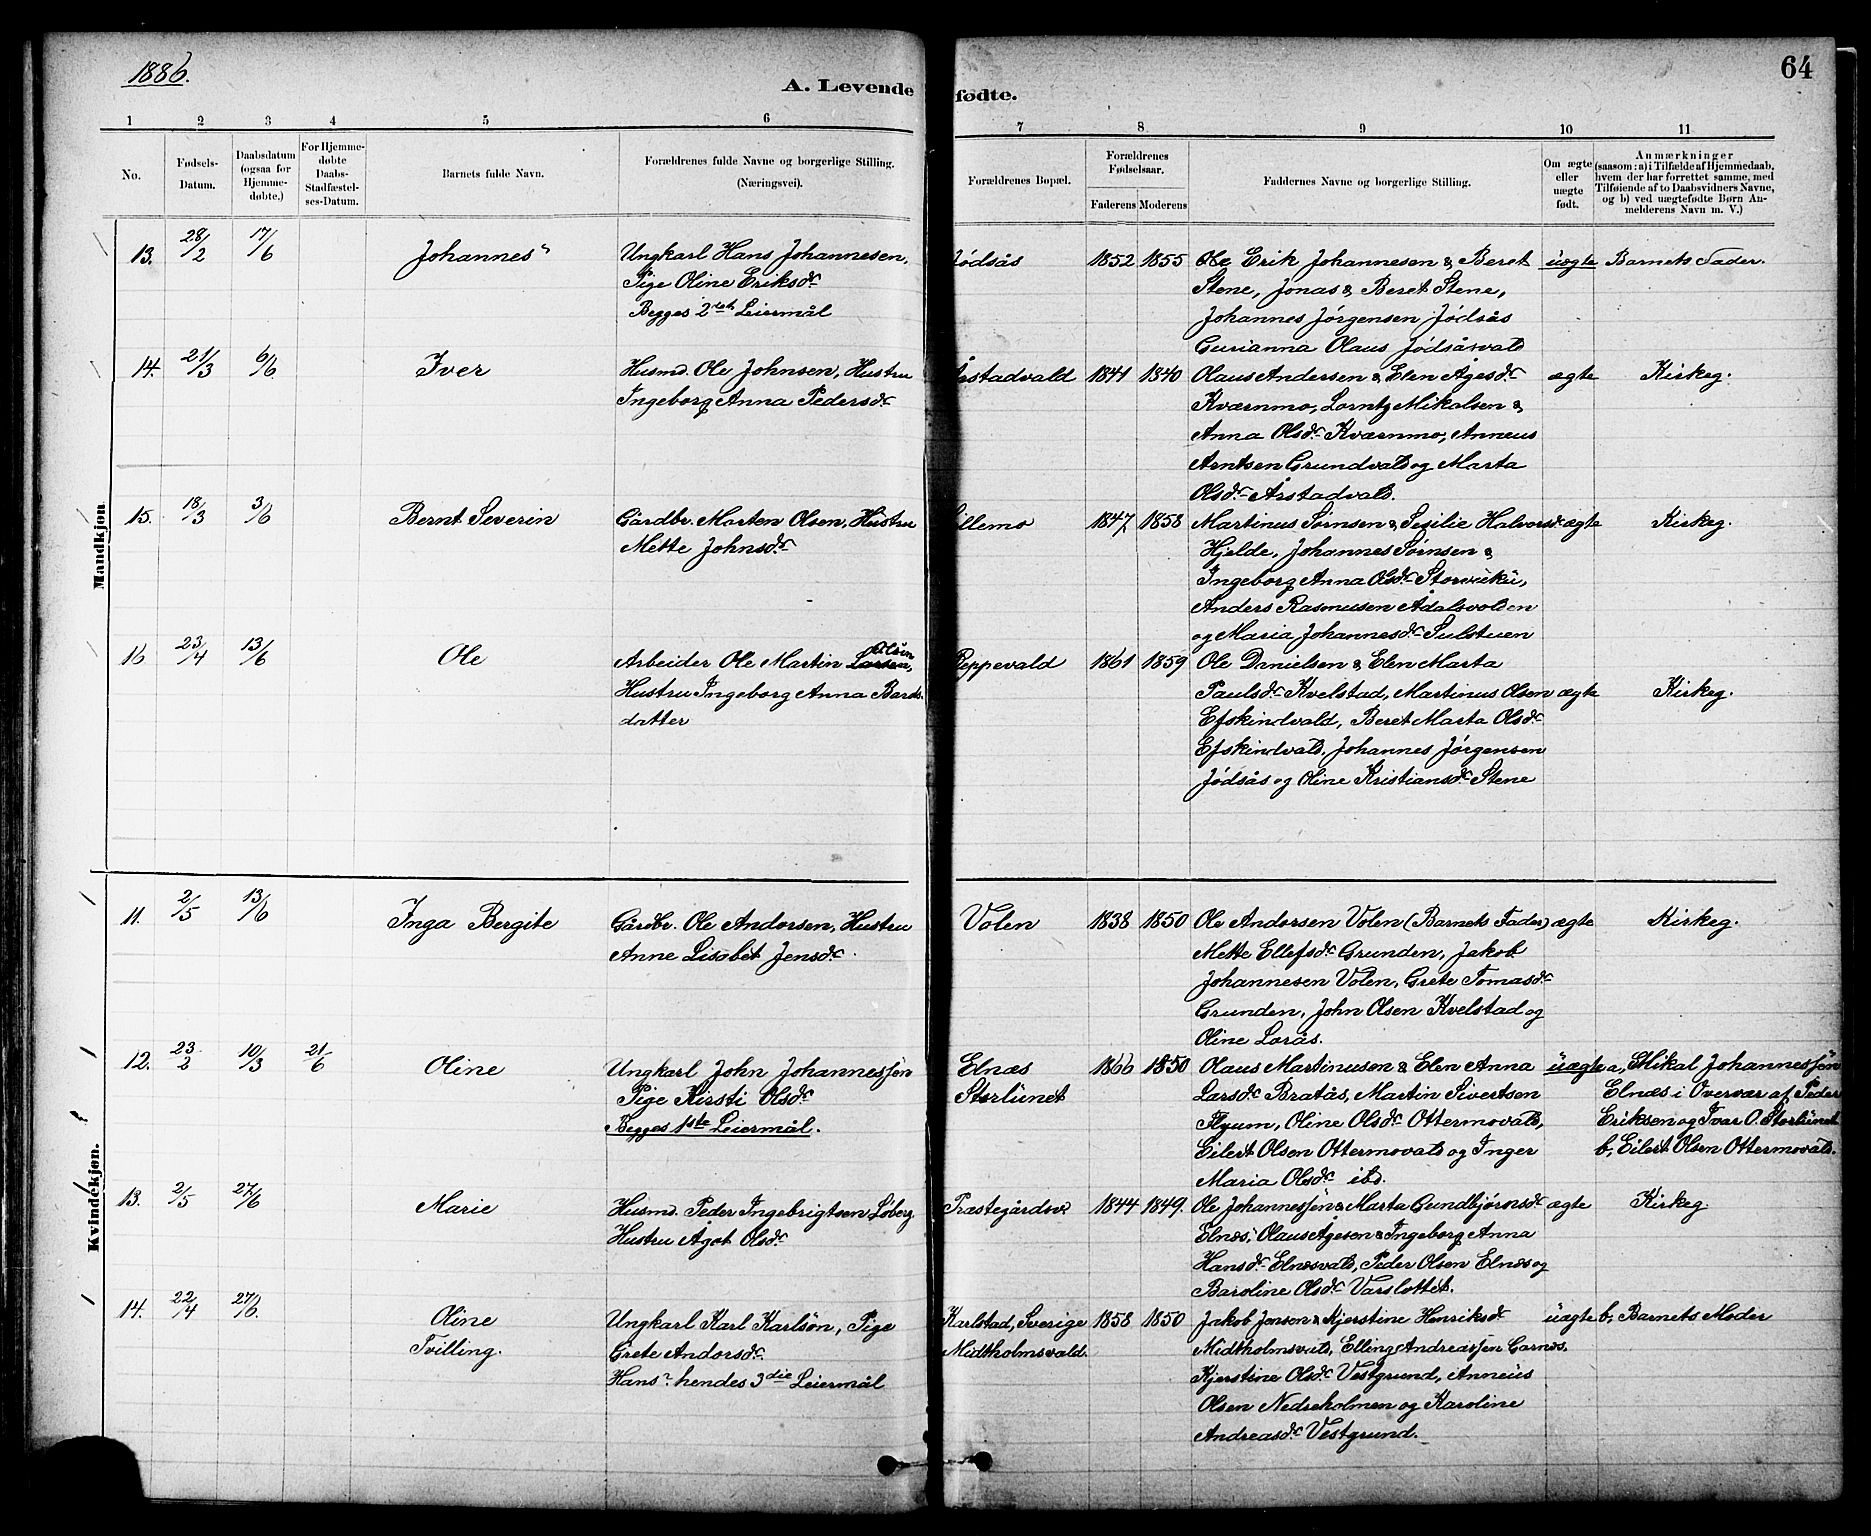 1886.
64
A. Levende fødte.
1 2 3 4 5 6 7 8 9 10 11
No.
Fødsels-Datum.
Daabsdatum (ogsaa for Hjemme-døbte.)
For Hjemme-døbte Daabs-Stadfæstel-ses-Datum.
Barnets fulde Navn.
Forældrenes fulde Navne og borgerlige Stilling. (Næringsvei).
Forældrenes Bopæl.
Forældrenes Fødselsaar.
Faderens Moderens
Faddernes Navne og borgerlige Stilling.
Om ægte eller uægte født.
Anmærkninger
(saasom: a) i Tilfælde af Hjemmedaab, hvem der har forrettet samme, med Tilføiende af to Daabsvidners Navne, og b) ved uægtefødte Børn Anmelderens Navn m. V.)
Mandkjøn
13. 28/2 17/6 Johannes Ungkarl Hans Johannesen, Jødsås 1852 1855 Ole Erik Johannesen & Beret uægte Barnets Fader.
Pige Oline Eriksdr Stene, Jonas & Beret Stene,
Begges 2det Leiermål Johannes Jørgensen Jødsås
Gurianna Olaus Jødsåsvald
14. 21/3 6/6 Iver Husmd. Ole Johnsen, Hustru Årstadvald 1841 1840 Olaus Andersen & Elen Ågesdr ægte Kirkeg.
Ingeborg Anna Pedersdr Kværnmo, Lorntz Mikalsen &
Anna Olsdr Kværnmo, Anneus
Arntsen Grundvald og Marta
Olsdr Årstadvald.
15. 18/3 3/6 Bernt Severin Gårdbr. Morten Olsen, Hustru Lillemo 1847 1858 Martinus Sørnsen & Sesilie Halvorsdr ægte Kirkeg.
Mette Johnsdr Hjelde, Johannes Sørnsen &
Ingeborg Anna Olsdr Storvuku,
Anders Rasmusen Ådalsvolden
og Maria Johannesdr Sulstuen
16 23/4 13/6 Ole Arbeider Ole Martin Larsen, Olsen Peppevald 1861 1859 Ole Danielsen & Elen Marta
Hustru Ingeborg Anna Bards- Paulsdr Kvelstad, Martinus Olsen ægte Kirkeg.
datter Efskindvald, Beret Marta Olsdr
Efskindvald, Johannes Jørgensen
Jødsås og Oline Kristiansdr Stene
Kvindekjøn.
11. 2/5 13/6 Inga Bergite Gårdbr. Ole Andersen, Hustru Volen 1838 1850 Ole Andersen Volen (Barnets Fader) ægte Kirkeg.
Anne Lisabet Jensdr. Mette Ellefsdr Grunden, Jakob
Johannesen Volen, Grete Tomasdr
Grunden, John Olsen Kvelstad og
Oline Lorås.
12. 23/2 10/3 21/6 Oline Ungkarl John Johannessen Elnæs 1866 1850 Olaus Martinusen & Elen Anna uægte a, Mikal Johannessen
Pige Kirsti Olsdr Storlunet Larsdr Bratås, Martin Sivertsen Elnæs i Overvær af Peder
Begges 1ste Leiermål. Flyum, Oline Olsdr Ottermovald, Eriksen og Ivar O. Storlunet
Eilert Olsen Ottermovald og Inger b, Eilert Olsen Ottermovald.
Maria Olsdr ibd.
13. 2/5 27/6 Marie Husmd. Peder Ingebrigtsen Løberg Præstegårdsv. 1844 1849. Ole Johannessen & Marta Gundbjørnsdr ægte Kirkeg
Hustru Ågot Olsdr Elnæs, Olaus Ågesen & Ingeborg Anna
Hansdr Elnæsvald, Peder Olsen Elnæs og
Baroline Olsdr Varslottet.
14. 22/4 27/6. Oline Ungkarl Karl Karlsøn, Pige Karlstad, Sverige 1858 1850 Jakob Jensen & Kjerstine Henriksdr uægte b, Barnets Moder
Tvilling. Grete Andorsdr. Midtholmsvald. Midtholmsvald, Elling Andreassen Garnes.
Hans ? hendes 3die Leiermål Kjerstine Olsdr Vestgrund, Anneus
Olsen Nedreholmen og Karoline
Andreasdr Vestgrund.